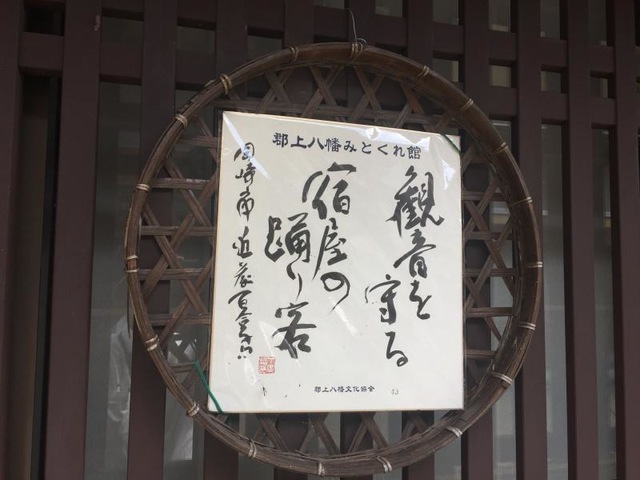 郡上八幡みとくれ館
観音を
守る
宿屋の
踊り客
岡崎市 近藤
郡上八幡文化協会